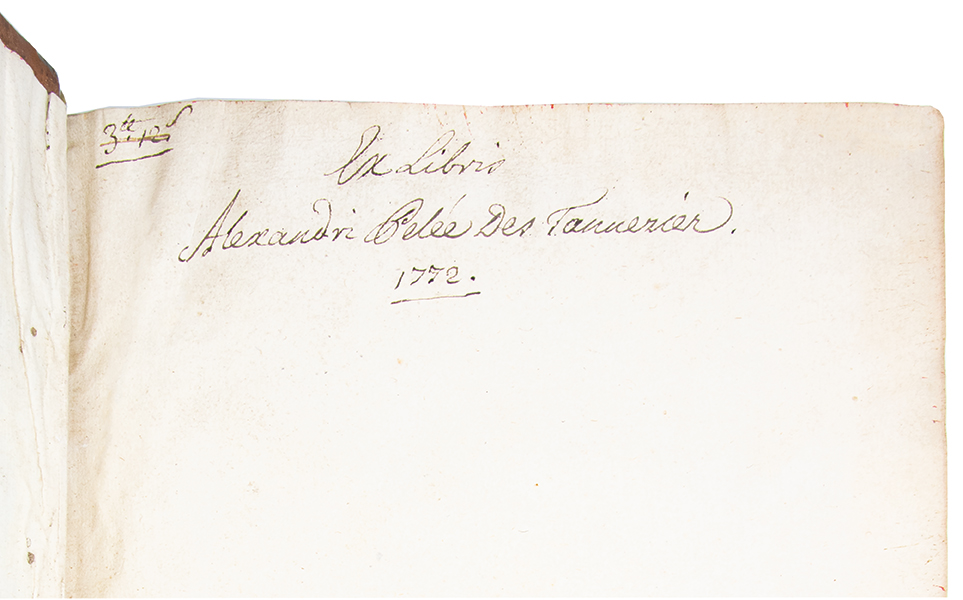 3ᵗᵗ 12ˢ
Ex Libris
Alexandri Pelée Des Tannerier.
1772.